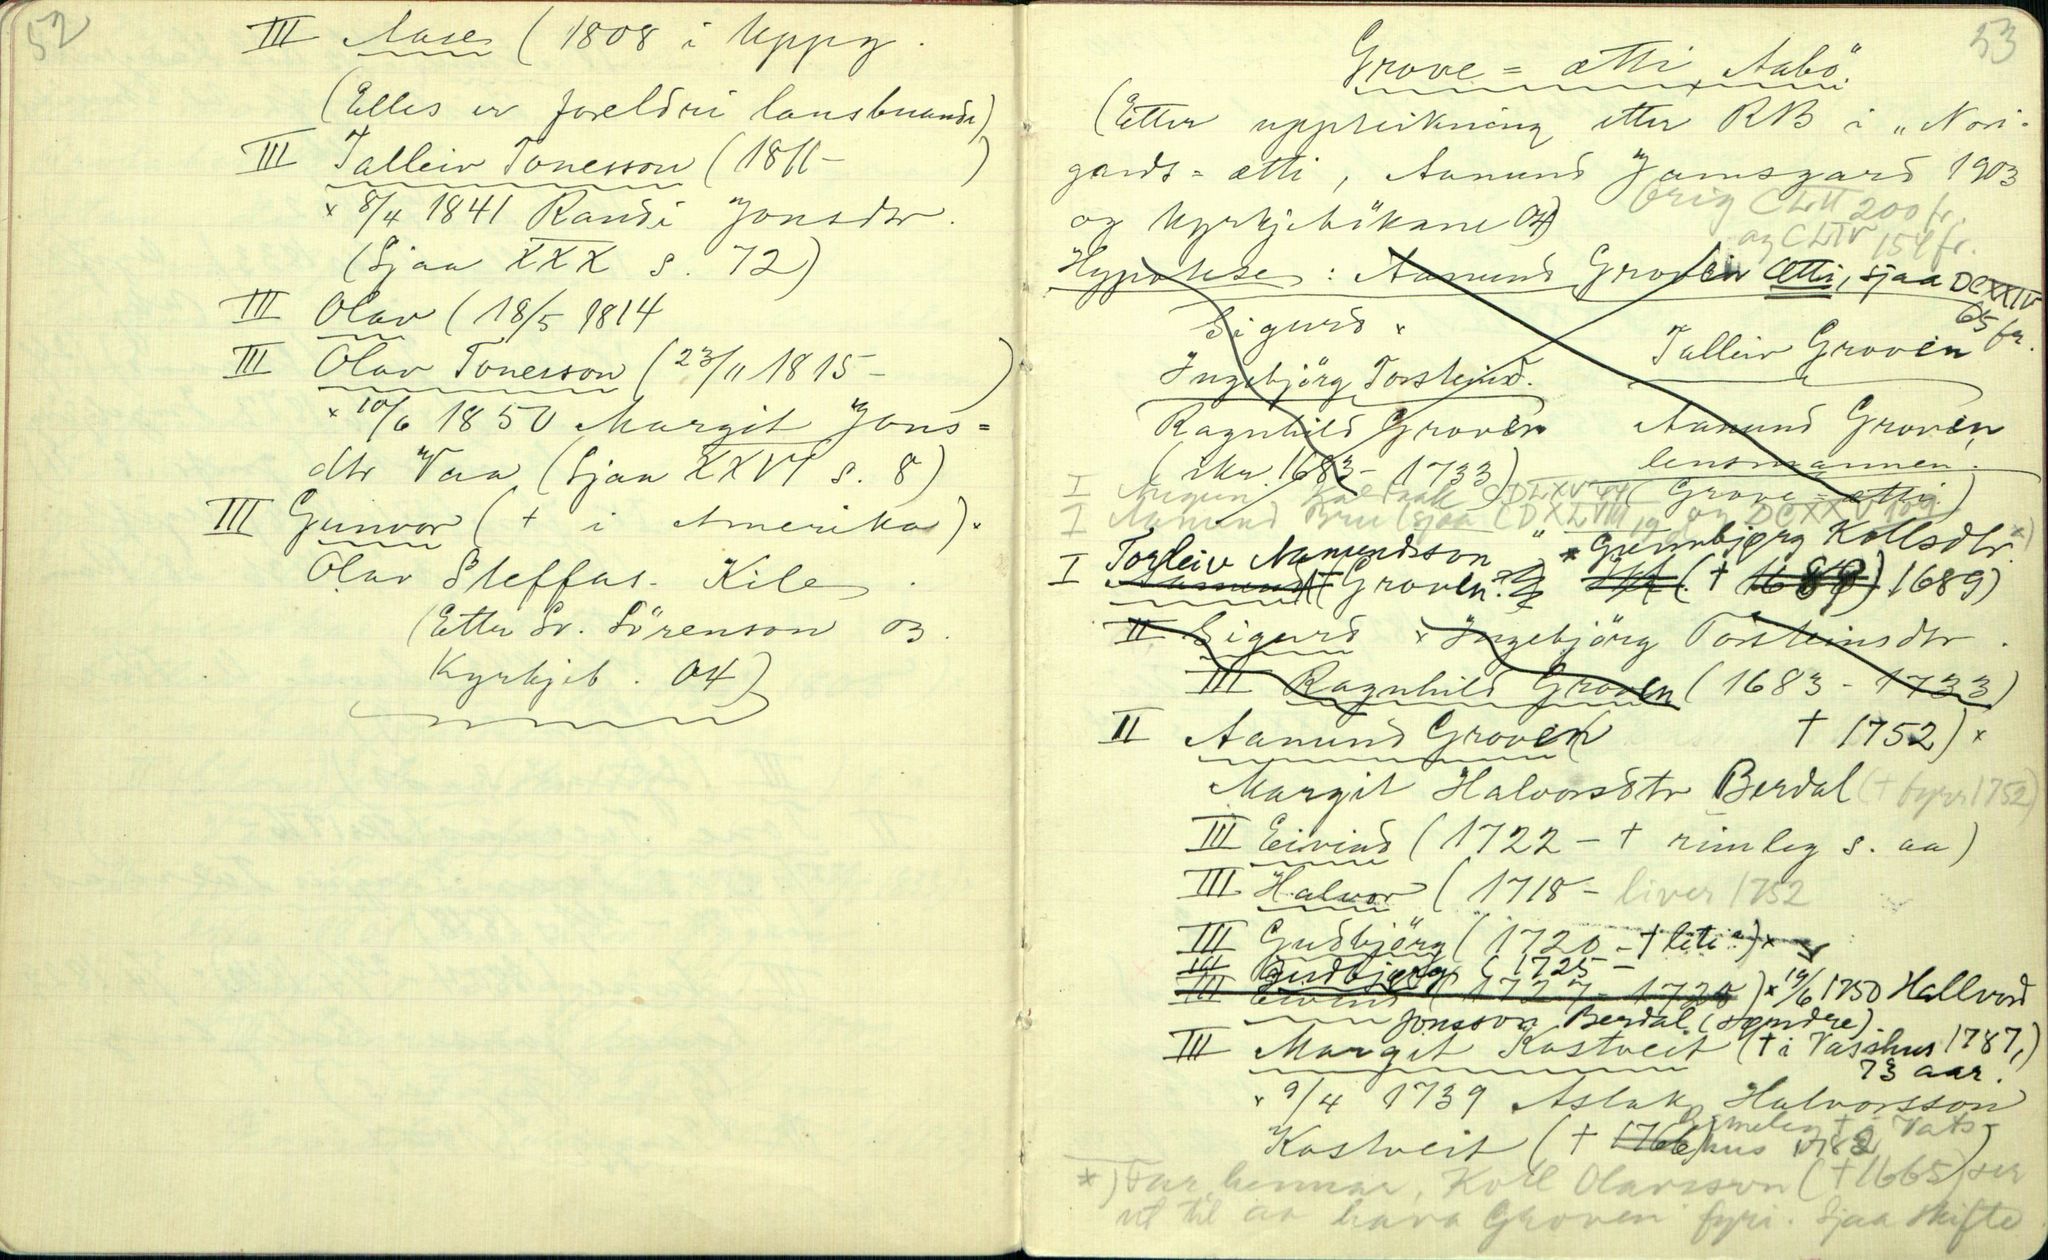 52
III Aase (1808 i uppv.
(Elles er foreldri lausbuande)
III Talleiv Tonesson (1811- )
× 8/4 1841 Randi Jonsdtr.
(Sjaa XXX s. 72)
III Olav (18/5 1814
III Olav Tonesson (23/11 1815- )
× 10/6 1850 Margit Jons=
dtr Vaa (Sjaa XXVI s. 8)
III Gunvor († i Amerika) ×
Olav Steffas. Kile.
(Etter Sv. Sörenson og
Kyrkjeb. 04)
53
Grove=ætti, Aabö.
(Etter uppteikning etter RB i „Nori-
gards=ætti, Aamund Jamsgard 1903
og kyrkjebökane 04)
orig CLII 200 fr.
og CLIV 154 fr.
Hypotese: Aamund Groven Ætti, sjaa DCXXIV
65 fr.
Sigurd × Talleiv Groven
Ingebjörg Torsteinsd.
Ragnhild Groven Aamund Groven,
(ikr. 1683-1733) lensmannen.
(Grove=ætti)
I CDLXV 44
I Aamund sjaa CDXLVIII 19 og DCXXV 109
Torleiv Aamundsson × Gunnbjørg Kollsdtr. *)
I Aamund Groven. († 1689) 1689)
II Sigurd × Ingebjörg Torsteinsdtr.
III Ragnhild Groven (1683-1733)
II Aamund Groven ( † 1752) ×
Margit Halvorsdtr Berdal († fyrr 1752)
III Eivind (1722 - † rimleg s. aa)
III Halvor (1718 - liver 1752
III Gudbjörg (1720 - † liti?) ×
III Gudbjørg (1725 -
III Eivind (1727-1728) × 19/6 1750 Hallvord
Jonsson Berdal (søndre).
III Margit Kostveit († i Vasshus 1787,)
73 aar.
× 9/4 1739 Aslak Halvorsson
Rimeleg † i Vats-
Kostveit († 1766) hus 1782)
*) Far hennar, Koll Olavsson († 1665) ser
ut til aa hava Groven fyri. Sjaa skifte